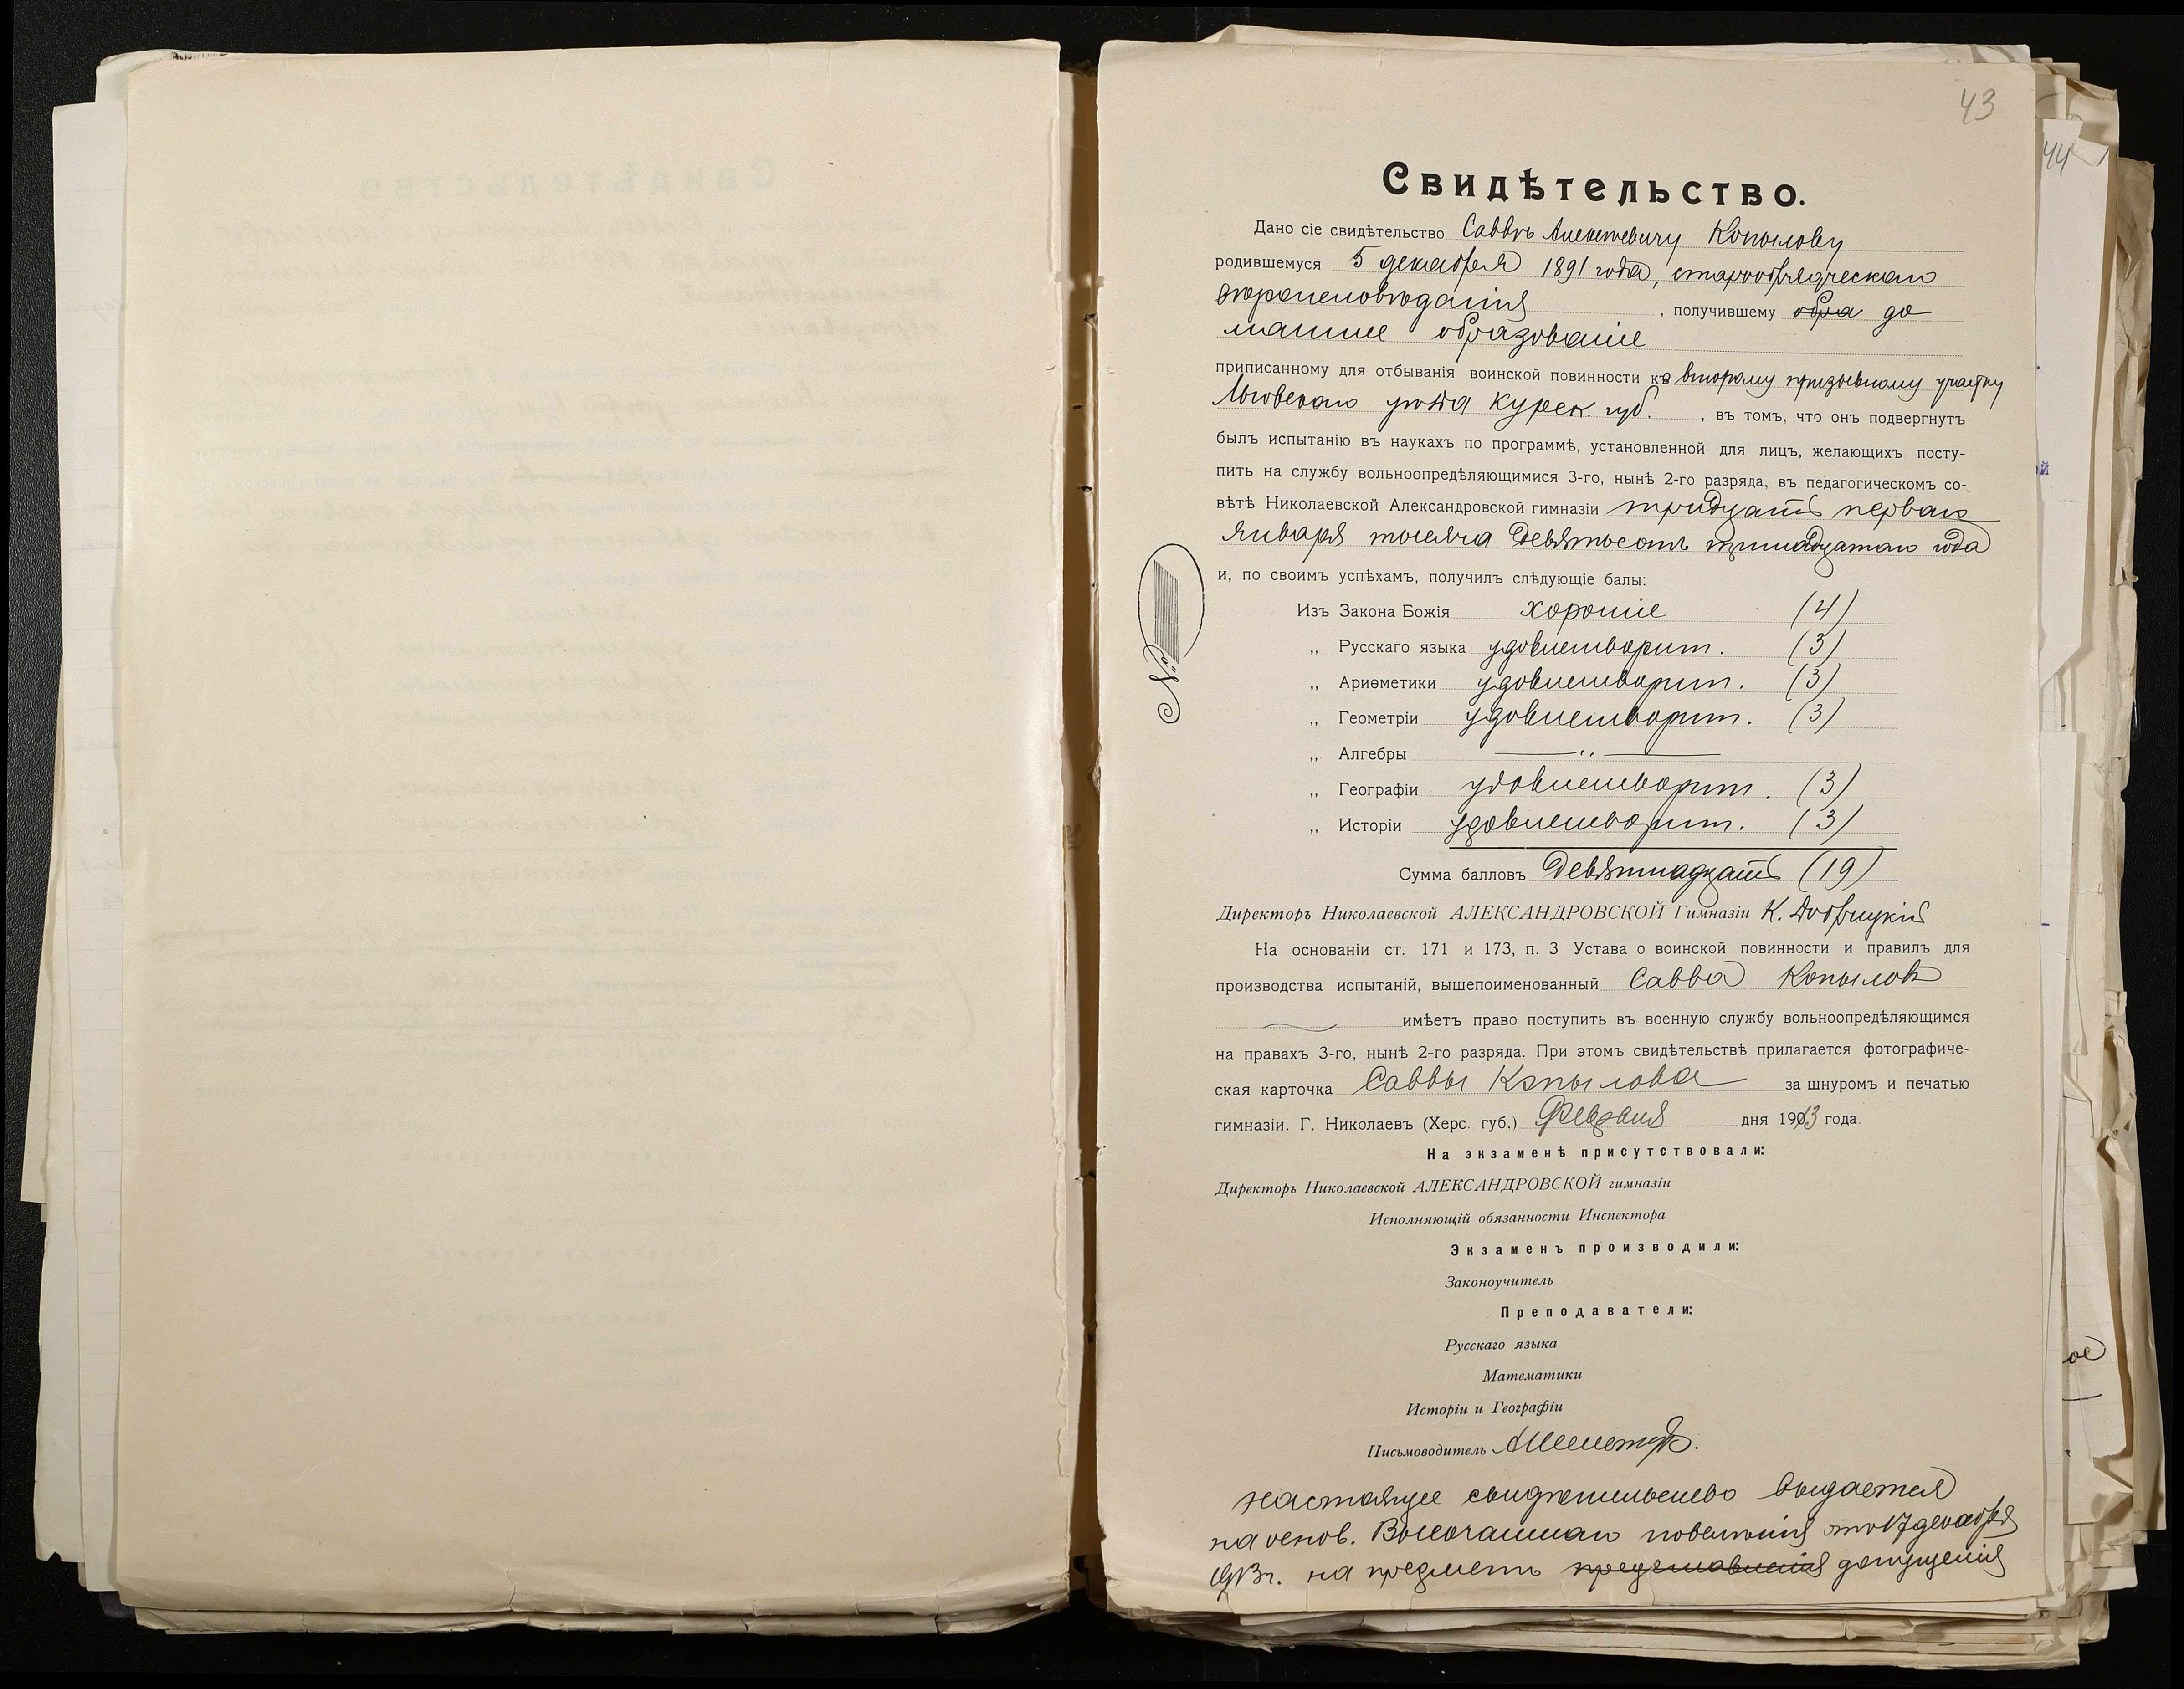 43
44
Свидѣтельство.
Дано сіе свидѣтельство Саввѣ Алексѣевичу Копылову
родившемуся 5 декабря 1891 года, старообрядческаго
вѣроисповѣданія, получившему обра до
машнее образованіе
приписанному для отбыванія воинской повинности ко второму призывному участку
Льговскаго уѣзда Курск. губ., въ томъ, что онъ подвергнутъ
былъ испытанію въ наукахъ по программѣ, установленной для лицъ, желающихъ посту-
пить на службу вольноопредѣляющимися 3-го, нынѣ 2-го разряда, въ педагогическомъ со-
вѣтѣ Николаевской Александровской гимназіи тридцать перваго
Января тысяча девятьсотъ тринадцатаго года
и, по своимъ успѣхамъ, получилъ слѣдующіе балы:
№
Изъ Закона Божія хорошіе (4)
„ Русскаго языка удовлетворит. (3)
„ Ариѳметики удовлетворит. (3)
„ Геометріи удовлетворит. (3)
„ Алгебры — „ —
„ Географіи удовлетворит. (3)
„ Исторіи удовлетворит. (3)
Сумма балловъ Девятнадцать (19)
Директоръ Николаевской АЛЕКСАНДРОВСКОЙ Гимназіи К.
На основаніи ст. 171 и 173, п. 3 Устава о воинской повинности и правилъ для
производства испытаній, вышепоименованный Савва Копыловъ
имѣетъ право поступить въ военную службу вольноопредѣляющимся
на правахъ 3-го, нынѣ 2-го разряда. При этомъ свидѣтельствѣ прилагается фотографиче-
ская карточка Саввы Копылова за шнуромъ и печатью
гимназіи. Г. Николаевъ (Херс. губ.) Февраля дня 1913 года.
На экзаменѣ присутствовали:
Директоръ Николаевской АЛЕКСАНДРОВСКОЙ гимназіи
Исполняющій обязанности Инспектора
Экзаменъ производили:
Законоучитель
Преподаватели:
Русскаго языка
Математики
Исторіи и Географіи
Письмоводитель
Настоящее свидѣтельство выдается
на основ. Высочайшаго повелѣнія отъ 17 декабря
г. на предметъ представленія допущенія